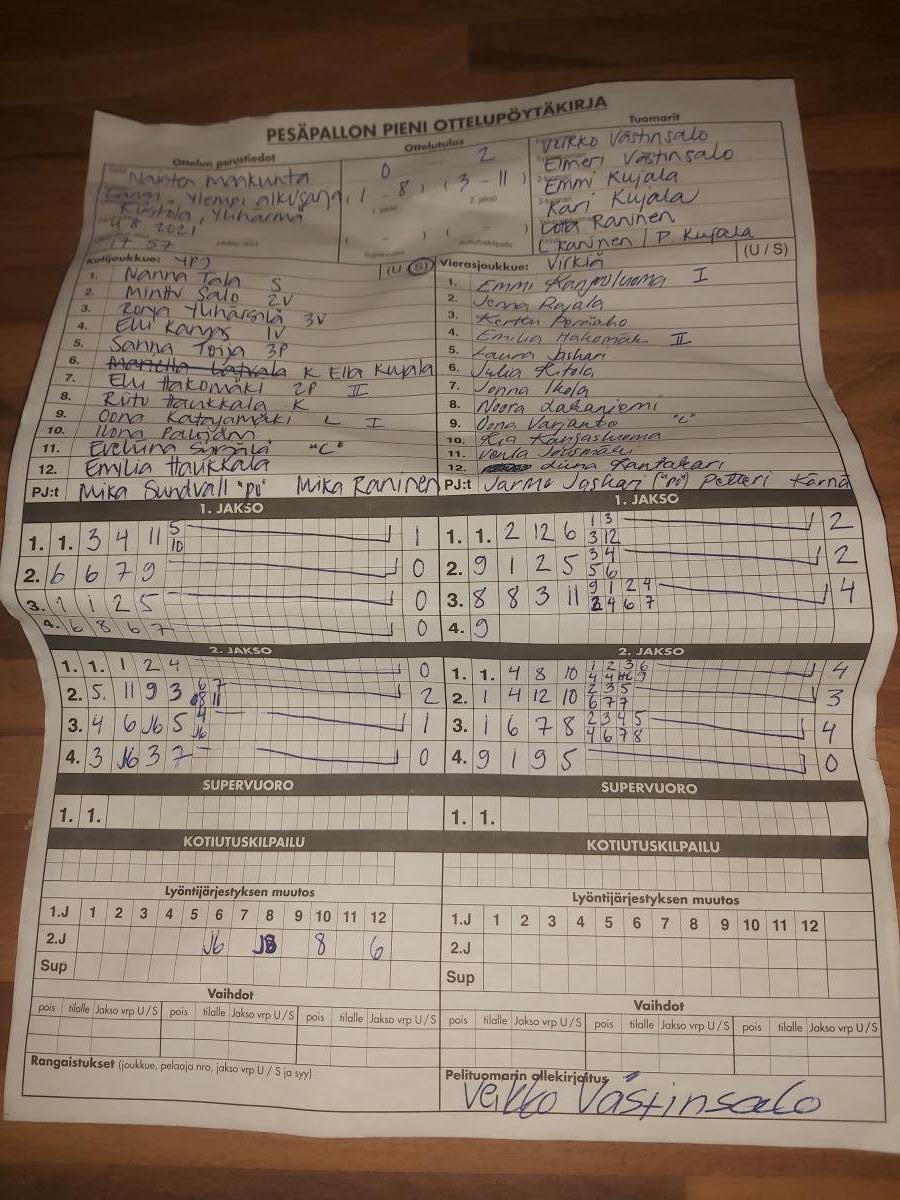 PESÄPALLON PIENI OTTELUPÖYTÄKIRJA
Ottelun perustiedot
Ottelutulos
Tuomarit
0 2
(1 - 8) (3 - 11)
1. jakso 2. jakso
( - ) ( - )
Ylempi alkusarja
Ylihärmä
4.8.2021
17 57
Veikko Västinsalo
Elmeri Västinsalo
Emmi Kujala
Kari Kujala
Raninen
P. Kujala
Kotijoukkue:
(U / S)
1. Nanna Tala S
2. Minttu Salo 2V
3. Ronja Ylihärsilä 3V
4. Elli Kangas 1V
5. Sanna Toija 3P
6. K Ella Kujala
7. Elli Hakomäki 2P II
8. Riitu Haukkala K
9. Oona Katajamäki L I
10. Ilona
11. Eveliina "C"
12. Emilia Haukkala
PJ:t Mika Sundvall "PJ" Mika Raninen
Vierasjoukkue: Virkiä
(U / S)
1. Emmi I
2. Jenna Rajala
3. Kerttu
4. Emilia Hakomäki II
5. Laura Jashari
6. Julia Ritola
7. Jonna Ikola
8. Noora Lakaniemi
9. Oona Varjanto "C"
10. Kia Kangasluoma
11. Venla
12. Liina Rantakari
PJ:t Jarmo Jashari ("PJ") Petteri Kärnä
1. JAKSO
1. 1. 3 4 11 5 10 1
2. 6 6 7 9 0
3. 1 1 2 5 0
4. 6 8 6 7 0
1. JAKSO
1. 1. 2 12 6 1 3 3 12 2
2. 9 1 2 5 3 4 5 6 2
3. 8 8 3 11 9 1 2 4 2 4 6 7 4
4. 9
2. JAKSO
1. 1. 1 2 4 0
2. 5. 11 9 3 6 7 8 11 2
3. 4 6 J6 5 4 J6 1
4. 3 J6 3 7 0
2. JAKSO
1. 1. 4 8 10 1 2 3 6 4 4 9 4
2. 1 4 12 10 2 3 5 6 7 7 3
3. 1 6 7 8 2 3 4 5 4 6 7 8 4
4. 9 1 9 5 0
SUPERVUORO
1. 1.
SUPERVUORO
1. 1.
KOTIUTUSKILPAILU
KOTIUTUSKILPAILU
Lyöntijärjestyksen muutos
1.J 1 2 3 4 5 6 7 8 9 10 11 12
2.J J6 J8 8 6
Sup
Lyöntijärjestyksen muutos
1.J 1 2 3 4 5 6 7 8 9 10 11 12
2.J
Sup
Vaihdot
pois tilalle Jakso vrp U / S pois tilalle Jakso vrp U / S pois tilalle Jakso vrp U / S
Vaihdot
pois tilalle Jakso vrp U / S pois tilalle Jakso vrp U / S pois tilalle Jakso vrp U / S
Rangaistukset (joukkue, pelaaja nro, jakso vrp U / S ja syy)
Pelituomarin allekirjoitus
Veikko Västinsalo